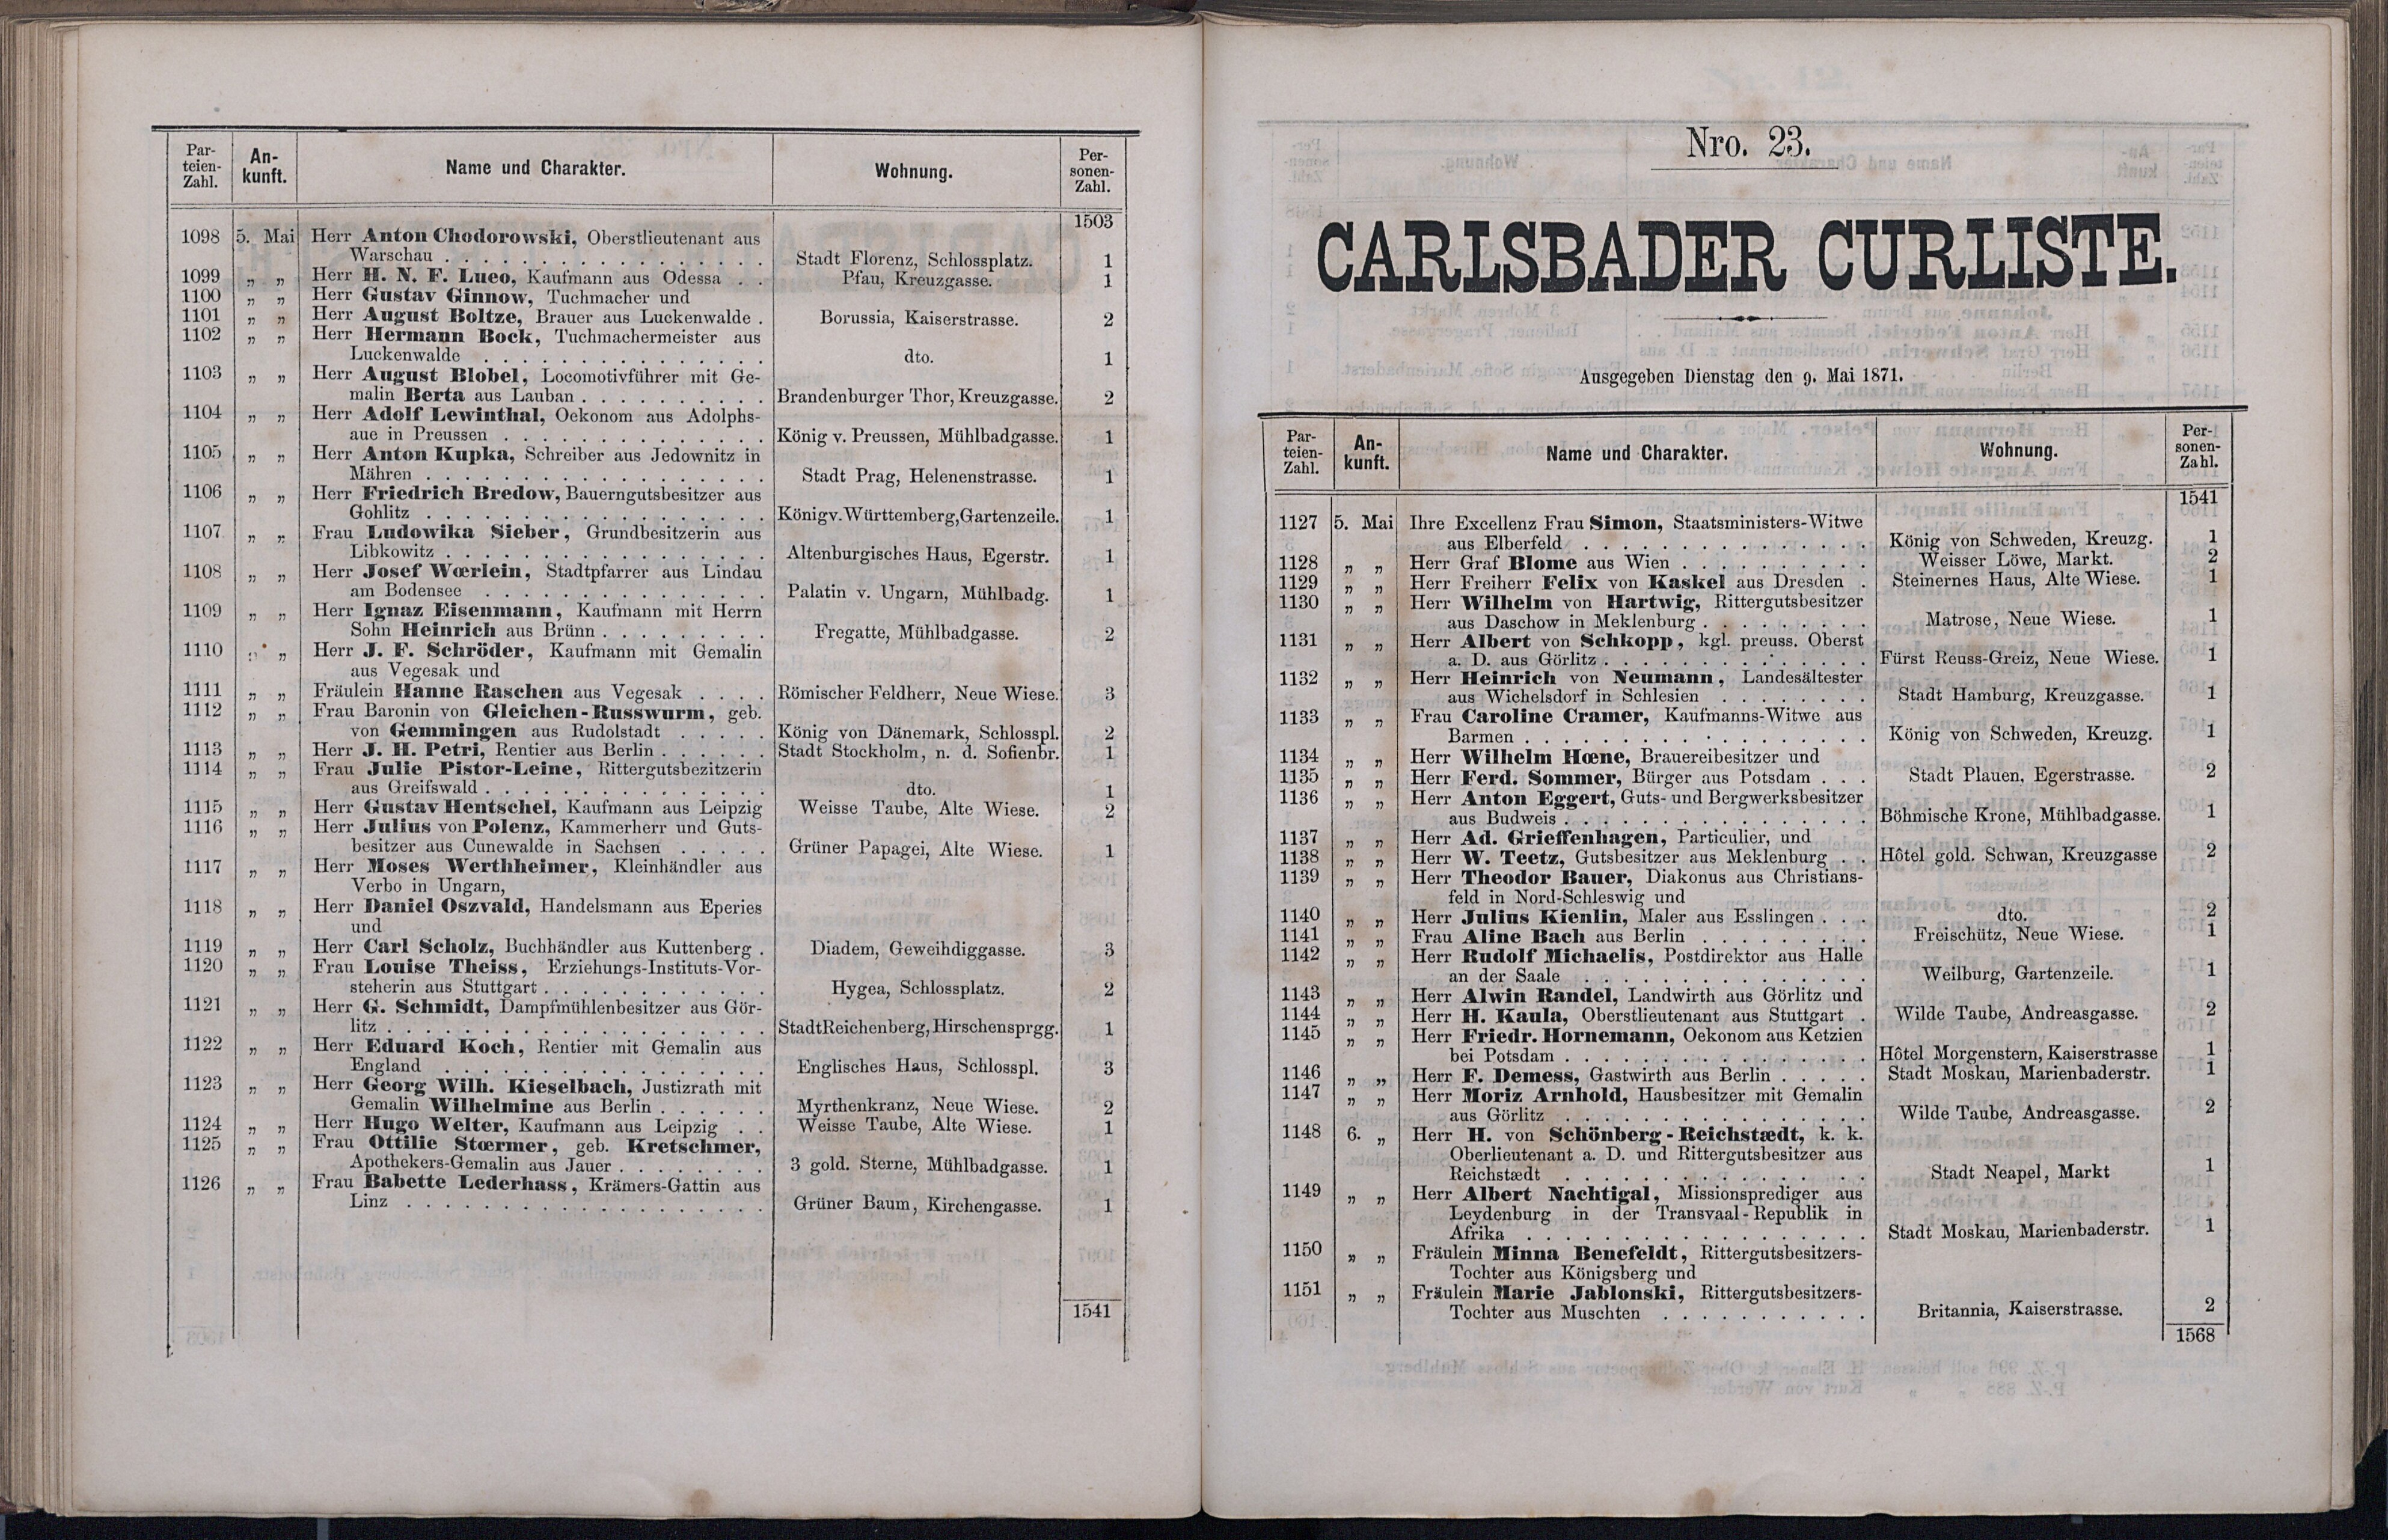 Par-
teien-
Zahl.
An-
kunft.
Name und Charakter.
Wohnung.
Per-
sonen-
Zahl.
1503
1098 5. Mai Herr Anton Chodorowski, Oberstlieutenant aus
Warschau . . . . . Stadt Florenz, Schlossplatz. 1
1099 „ „ Herr H. N. F. Lueo, Kaufmann aus Odessa . . Pfau, Kreuzgasse. 1
1100 „ „ Herr Gustav Ginnow, Tuchmacher und
1101 „ „ Herr August Boltze, Brauer aus Luckenwalde . Borussia, Kaiserstrasse. 2
1102 „ „ Herr Hermann Bock, Tuchmachermeister aus
Luckenwalde . . . . . dto. 1
1103 „ „ Herr August Blobel, Locomotivführer mit Ge-
malin Berta aus Lauban . . . . . Brandenburger Thor, Kreuzgasse. 2
1104 „ „ Herr Adolf Lewinthal, Oekonom aus Adolphs-
aue in Preussen . . . . . König v. Preussen, Mühlbadgasse. 1
1105 „ „ Herr Anton Kupka, Schreiber aus Jedownitz in
Mähren . . . . . Stadt Prag, Helenenstrasse. 1
1106 „ „ Herr Friedrich Bredow, Bauerngutsbesitzer aus
Gohlitz . . . . . König v. Württemberg, Gartenzeile. 1
1107 „ „ Frau Ludowika Sieber, Grundbesitzerin aus
Libkowitz . . . . . Altenburgisches Haus, Egerstr. 1
1108 „ „ Herr Josef Wœrlein, Stadtpfarrer aus Lindau
am Bodensee . . . . . Palatin v. Ungarn, Mühlbadg. 1
1109 „ „ Herr Ignaz Eisenmann, Kaufmann mit Herrn
Sohn Heinrich aus Brünn . . . . . Fregatte, Mühlbadgasse. 2
1110 „ „ Herr J. F. Schröder, Kaufmann mit Gemalin
aus Vegesak und
1111 „ „ Fräulein Hanne Raschen aus Vegesak . . . . Römischer Feldherr, Neue Wiese. 3
1112 „ „ Frau Baronin von Gleichen-Russwurm, geb.
von Gemmingen aus Rudolstadt . . . . . König von Dänemark, Schlosspl. 2
1113 „ „ Herr J. H. Petri, Rentier aus Berlin . . . . . Stadt Stockholm, n. d. Sofienbr. 1
1114 „ „ Frau Julie Pistor-Leine, Rittergutsbezitzerin
aus Greifswald . . . . . dto. 1
1115 „ „ Herr Gustav Hentschel, Kaufmann aus Leipzig Weisse Taube, Alte Wiese. 2
1116 „ „ Herr Julius von Polenz, Kammerherr und Guts-
besitzer aus Cunewalde in Sachsen . . . . . Grüner Papagei, Alte Wiese. 1
1117 „ „ Herr Moses Werthheimer, Kleinhändler aus
Verbo in Ungarn,
1118 „ „ Herr Daniel Oszvald, Handelsmann aus Eperies
und
1119 „ „ Herr Carl Scholz, Buchhändler aus Kuttenberg . Diadem, Geweihdiggasse. 3
1120 „ „ Frau Louise Theiss, Erziehungs-Instituts-Vor-
steherin aus Stuttgart . . . . . Hygea, Schlossplatz. 2
1121 „ „ Herr G. Schmidt, Dampfmühlenbesitzer aus Gör-
litz . . . . . Stadt Reichenberg, Hirschensprgg. 1
1122 „ „ Herr Eduard Koch, Rentier mit Gemalin aus
England . . . . . Englisches Haus, Schlosspl. 3
1123 „ „ Herr Georg Wilh. Kieselbach, Justizrath mit
Gemalin Wilhelmine aus Berlin . . . . . Myrthenkranz, Neue Wiese. 2
1124 „ „ Herr Hugo Welter, Kaufmann aus Leipzig . . Weisse Taube, Alte Wiese. 1
1125 „ „ Frau Ottilie Stœrmer, geb. Kretschmer,
Apothekers-Gemalin aus Jauer . . . . . 3 gold. Sterne, Mühlbadgasse. 1
1126 „ „ Frau Babette Lederhass, Krämers-Gattin aus
Linz . . . . . Grüner Baum, Kirchengasse. 1
1541
Nro. 23.
CARLSBADER CURLISTE.
Ausgegeben Dienstag den 9. Mai 1871.
Par-
teien-
Zahl.
An-
kunft.
Name und Charakter.
Wohnung.
Per-
sonen-
Zahl.
1541
1127 5. Mai Ihre Excellenz Frau Simon, Staatsministers-Witwe
aus Elberfeld . . . . . König von Schweden, Kreuzg. 1
1128 „ „ Herr Graf Blome aus Wien . . . . . Weisser Löwe, Markt. 2
1129 „ „ Herr Freiherr Felix von Kaskel aus Dresden . Steinernes Haus, Alte Wiese. 1
1130 „ „ Herr Wilhelm von Hartwig, Rittergutsbesitzer
aus Daschow in Meklenburg . . . . . Matrose, Neue Wiese. 1
1131 „ „ Herr Albert von Schkopp, kgl. preuss. Oberst
a. D. aus Görlitz . . . . . Fürst Reuss-Greiz, Neue Wiese. 1
1132 „ „ Herr Heinrich von Neumann, Landesältester
aus Wichelsdorf in Schlesien . . . . . Stadt Hamburg, Kreuzgasse. 1
1133 „ „ Frau Caroline Cramer, Kaufmanns-Witwe aus
Barmen . . . . . König von Schweden, Kreuzg. 1
1134 „ „ Herr Wilhelm Hœne, Brauereibesitzer und
1135 „ „ Herr Ferd. Sommer, Bürger aus Potsdam . . . Stadt Plauen, Egerstrasse. 2
1136 „ „ Herr Anton Eggert, Guts- und Bergwerksbesitzer
aus Budweis . . . . . Böhmische Krone, Mühlbadgasse. 1
1137 „ „ Herr Ad. Grieffenhagen, Particulier, und
1138 „ „ Herr W. Teetz, Gutsbesitzer aus Meklenburg . . Hôtel gold. Schwan, Kreuzgasse 2
1139 „ „ Herr Theodor Bauer, Diakonus aus Christians-
feld in Nord-Schleswig und
1140 „ „ Herr Julius Kienlin, Maler aus Esslingen . . . dto. 2
1141 „ „ Frau Aline Bach aus Berlin . . . . . Freischütz, Neue Wiese. 1
1142 „ „ Herr Rudolf Michaelis, Postdirektor aus Halle
an der Saale . . . . . Weilburg, Gartenzeile. 1
1143 „ „ Herr Alwin Randel, Landwirth aus Görlitz und
1144 „ „ Herr H. Kaula, Oberstlieutenant aus Stuttgart . Wilde Taube, Andreasgasse. 2
1145 „ „ Herr Friedr. Hornemann, Oekonom aus Ketzien
bei Potsdam . . . . . Hôtel Morgenstern, Kaiserstrasse 1
1146 „ „ Herr F. Demess, Gastwirth aus Berlin . . . . . Stadt Moskau, Marienbaderstr. 1
1147 „ „ Herr Moriz Arnhold, Hausbesitzer mit Gemalin
aus Görlitz . . . . . Wilde Taube, Andreasgasse. 2
1148 6. „ Herr H. von Schönberg-Reichstædt, k. k.
Oberlieutenant a. D. und Rittergutsbesitzer aus
Reichstædt . . . . . Stadt Neapel, Markt 1
1149 „ „ Herr Albert Nachtigal, Missionsprediger aus
Leydenburg in der Transvaal-Republik in
Afrika . . . . . Stadt Moskau, Marienbaderstr. 1
1150 „ „ Fräulein Minna Benefeldt, Rittergutsbesitzers-
Tochter aus Königsberg und
1151 „ „ Fräulein Marie Jablonski, Rittergutsbesitzers-
Tochter aus Muschten . . . . . Britannia, Kaiserstrasse. 2
1568